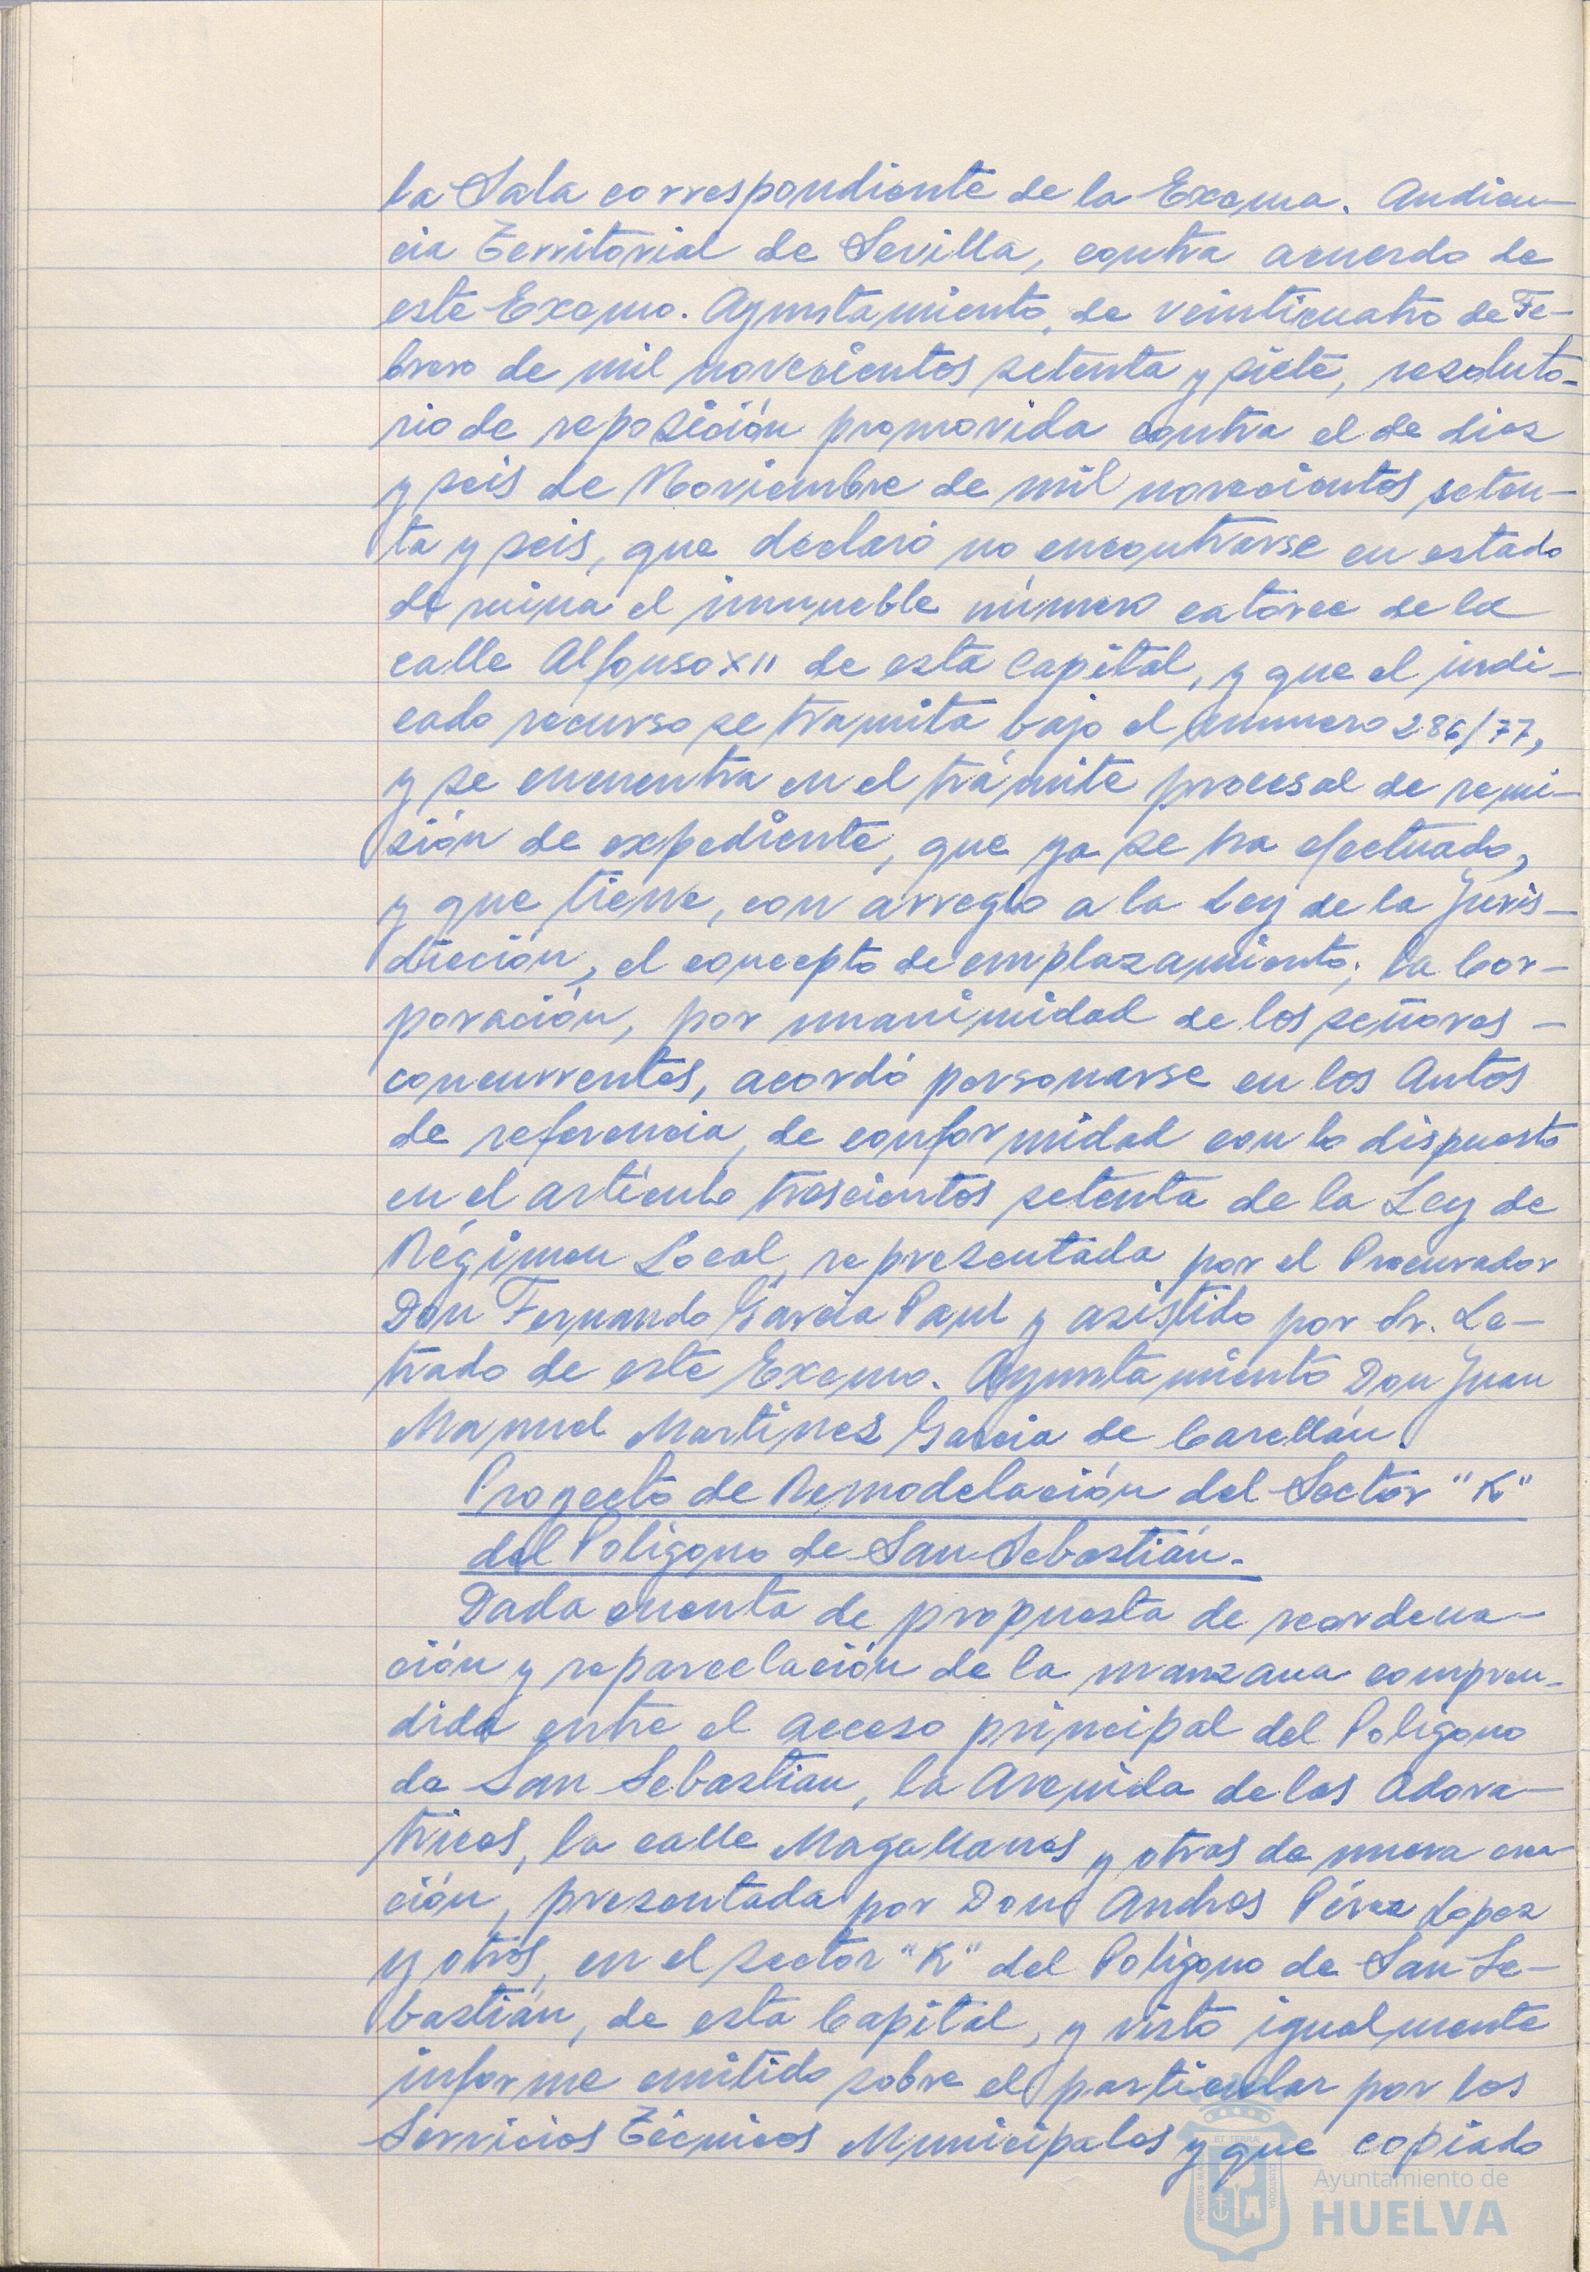 la Sala correspondiente de la Excma. Audien-
cia Territorial de Sevilla, contra acuerdo de
este Excmo. Ayuntamiento, de veinticuatro de Fe-
brero de mil novecientos setenta y siete, resoluto-
rio de reposición promovida contra el de diez
y seis de Noviembre de mil novecientos seten-
ta y seis, que declaró no encontrarse en estado
de ruina el inmueble número catorce de la
calle Alfonso XII de esta Capital, y que el indi-
cado recurso se tramita bajo el número 286/77,
y se encuentra en el trámite procesal de remi-
sión de expediente, que ya se ha efectuado,
y que tiene, con arreglo a la Ley de la Juris-
dicción, el concepto de emplazamiento; la Cor-
poración, por unanimidad de los señores -
concurrentes, acordó personarse en los Autos
de referencia, de conformidad con lo dispuesto
en el artículo trescientos setenta de la Ley de
Régimen Local, representada por el Procurador
Don Fernando García Paul y asistido por Sr. Le-
trado de este Excmo. Ayuntamiento Don Juan
Manuel Martínez García de Carellán.
Proyecto de Remodelación del Sector "K"
del Polígono de San Sebastián.-
Dada cuenta de propuesta de reordena-
ción y reparcelación de la manzana compren-
dida entre el acceso principal del Polígono
de San Sebastian, la Avenida de las Adora-
trices, la calle Magallanes y otras de nueva crea-
ción, presentada por Don Andres Pérez López
y otros, en el sector "K" del Polígono de San Se-
bastián, de esta Capital, y visto igualmente
informe emitido sobre el particular por los
Servicios Técnicos Municipales y que copiado
Ayuntamiento de
HUELVA